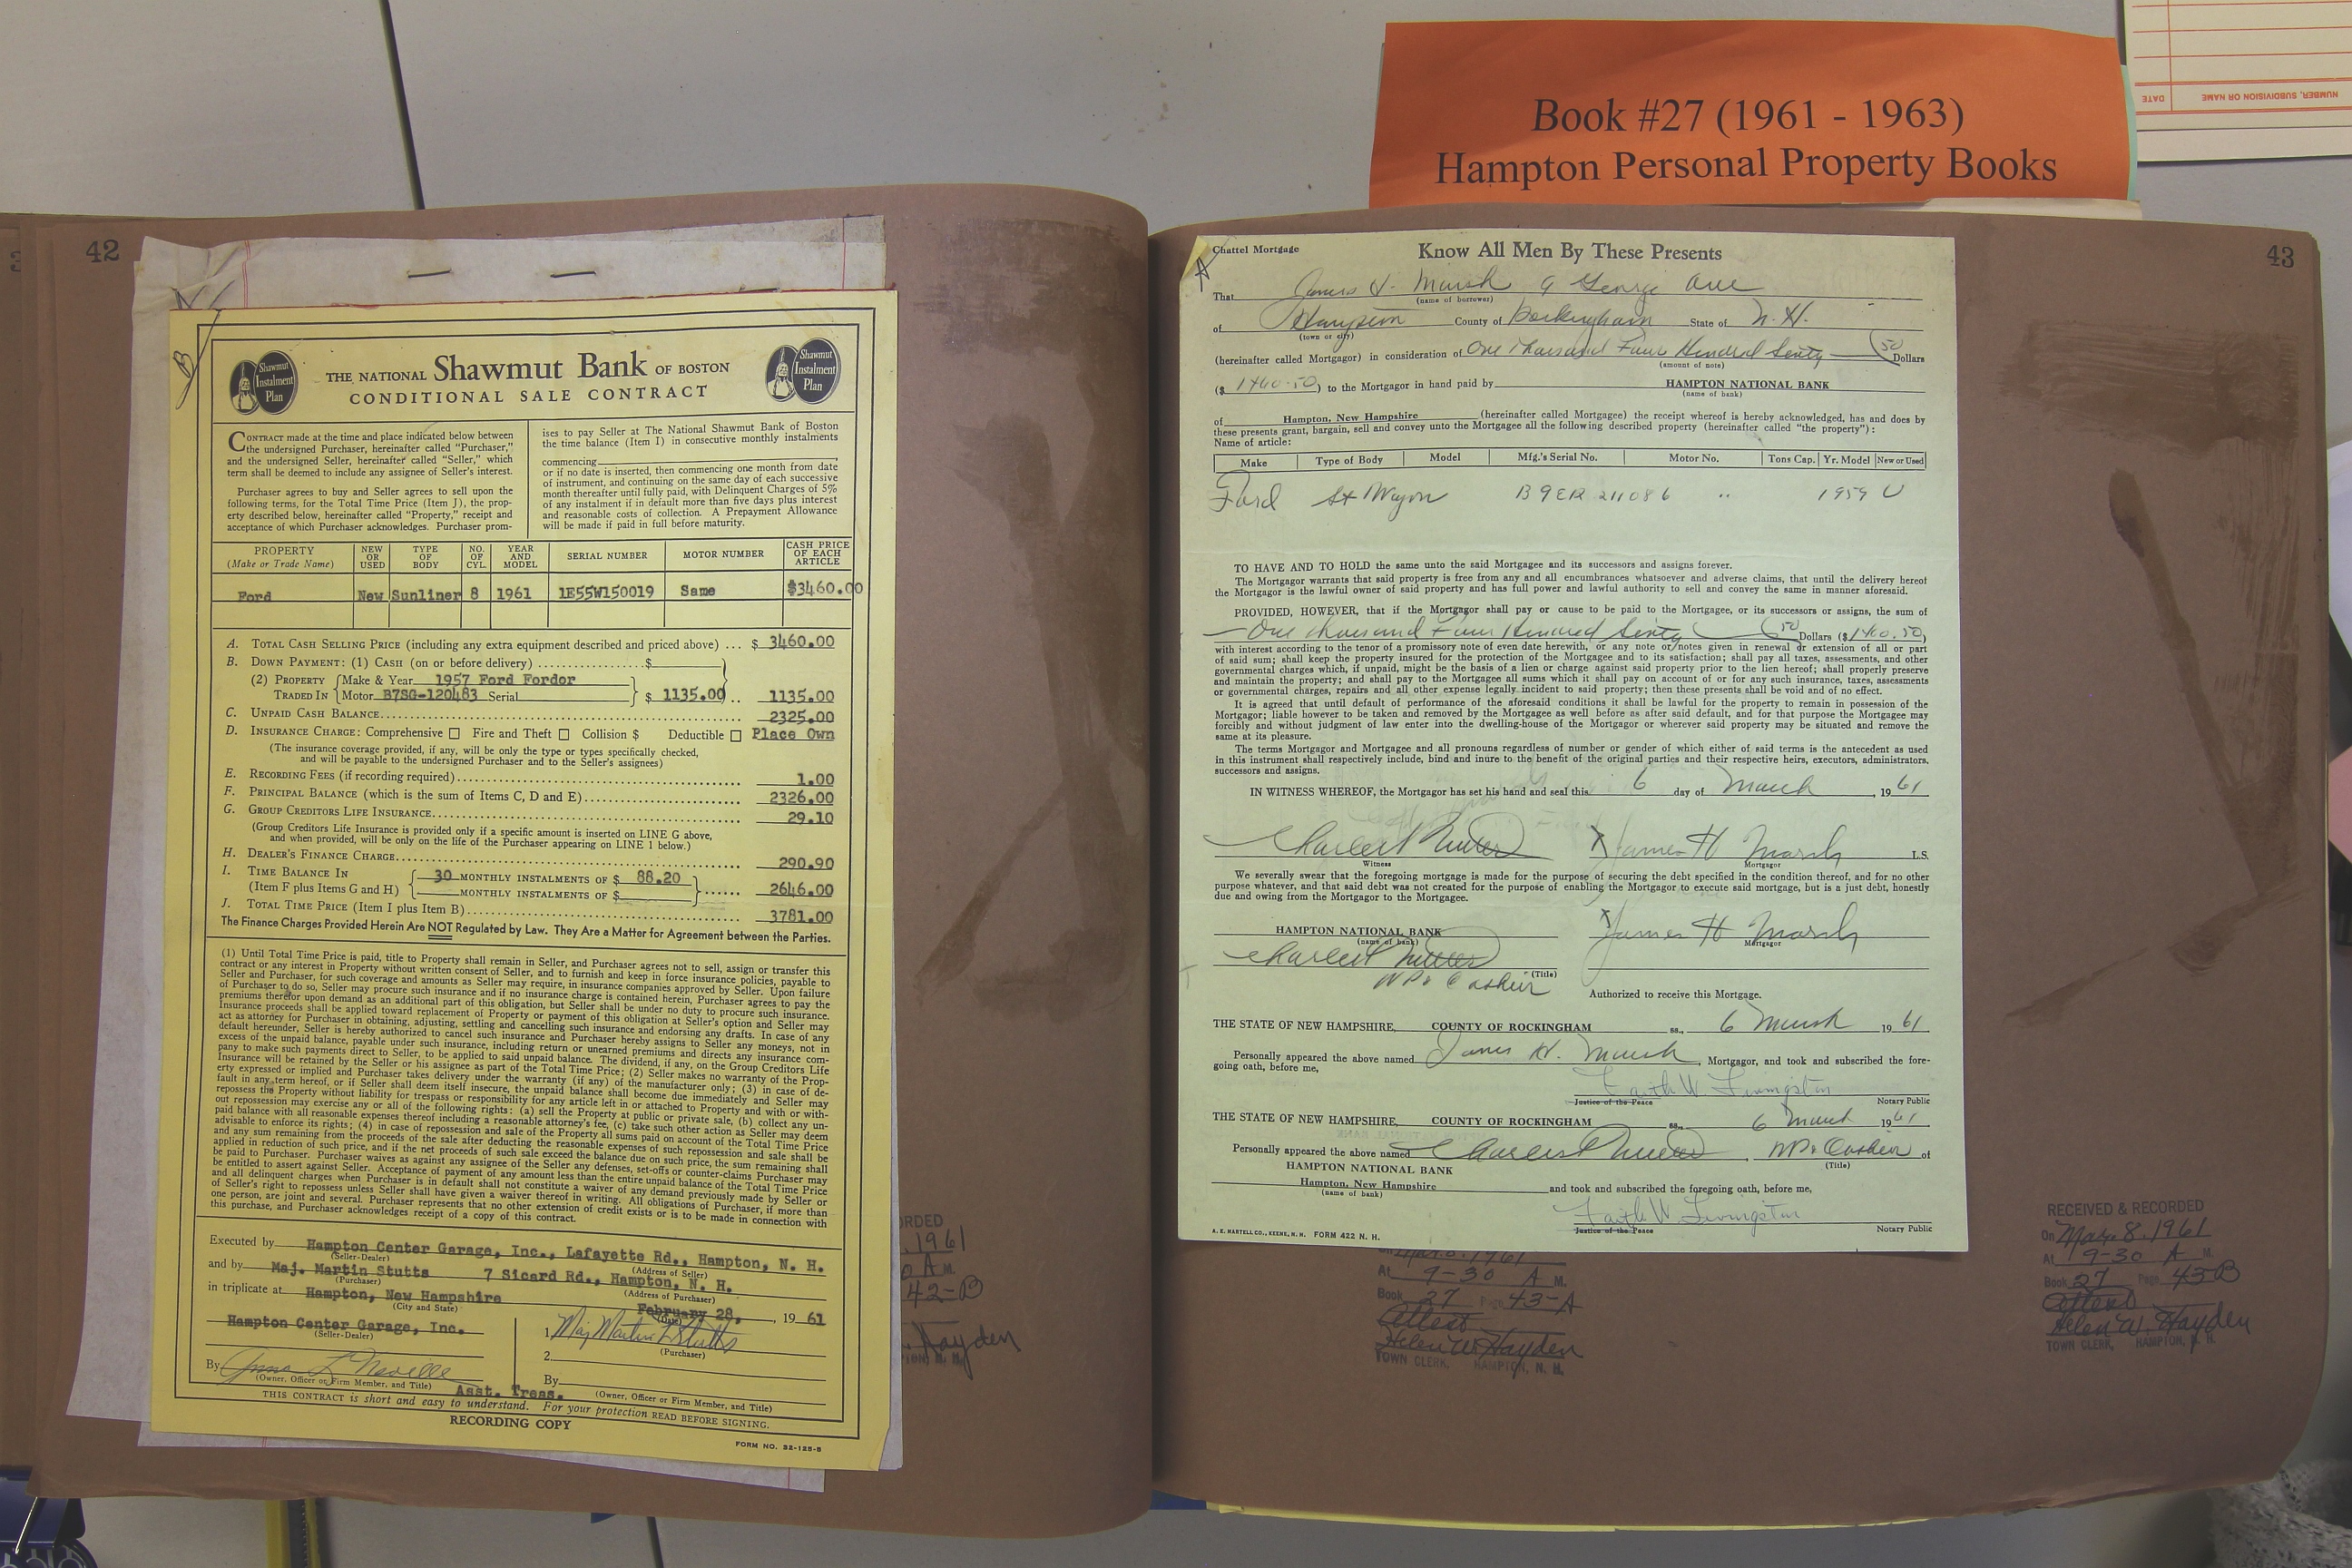 Book #27 (1961 - 1963)
Hampton Personal Property Books
NUMBER, SUBDIVISION OR NAME
DATE
42
B
Shawmut
Instalment
Plan
THE NATIONAL Shawmut Bank OF BOSTON
CONDITIONAL SALE CONTRACT
Shawmut
Instalment
Plan
CONTRACT made at the time and place indicated below between
the undersigned Purchaser, hereinafter called "Purchaser,"
and the undersigned Seller, hereinafter called "Seller," which
term shall be deemed to include any assignee of Seller's interest.
Purchaser agrees to buy and Seller agrees to sell upon the
following terms, for the Total Time Price (Item J), the prop-
erty described below, hereinafter called "Property," receipt and
acceptance of which Purchaser acknowledges. Purchaser prom-
ises to pay Seller at The National Shawmut Bank of Boston
the time balance (Item I) in consecutive monthly instalments
commencing
or if no date is inserted, then commencing one month from date
of instrument, and continuing on the same day of each successive
month thereafter until fully paid, with Delinquent Charges of 5%
of any instalment if in default more than five days plus interest
and reasonable costs of collection. A Prepayment Allowance
will be made if paid in full before maturity.
PROPERTY (Make or Trade Name) NEW OR USED TYPE OF BODY NO. OF CYL. YEAR AND MODEL SERIAL NUMBER MOTOR NUMBER CASH PRICE OF EACH ARTICLE
Ford New Sunliner 8 1961 1E55W150019 Same $3460.00
A. TOTAL CASH SELLING PRICE (including any extra equipment described and priced above) ... $ 3460.00
B. DOWN PAYMENT: (1) CASH (on or before delivery) .................. $
(2) PROPERTY TRADED IN Make & Year 1957 Ford Fordor
Motor B7SG-120483 Serial $ 1135.00 .. 1135.00
C. UNPAID CASH BALANCE 2325.00
D. INSURANCE CHARGE: Comprehensive □ Fire and Theft □ Collision $ Deductible □ Place Own
(The insurance coverage provided, if any, will be only the type or types specifically checked,
and will be payable to the undersigned Purchaser and to the Seller's assignees)
E. RECORDING FEES (if recording required) 1.00
F. PRINCIPAL BALANCE (which is the sum of Items C, D and E) 2326.00
G. GROUP CREDITORS LIFE INSURANCE 29.10
(Group Creditors Life Insurance is provided only if a specific amount is inserted on LINE G above,
and when provided, will be only on the life of the Purchaser appearing on LINE 1 below.)
H. DEALER'S FINANCE CHARGE 290.90
I. TIME BALANCE IN 30 MONTHLY INSTALMENTS OF $ 88.20
(Item F plus Items G and H) MONTHLY INSTALMENTS OF $ ...... 2646.00
J. TOTAL TIME PRICE (Item I plus Item B) 3781.00
The Finance Charges Provided Herein Are NOT Regulated by Law. They Are a Matter for Agreement between the Parties.
(1) Until Total Time Price is paid, title to Property shall remain in Seller, and Purchaser agrees not to sell, assign or transfer this
contract or any interest in Property without written consent of Seller, and to furnish and keep in force insurance policies, payable to
Seller and Purchaser, for such coverage and amounts as Seller may require, in insurance companies approved by Seller. Upon failure
of Purchaser to do so, Seller may procure such insurance and if no insurance charge is contained herein, Purchaser agrees to pay the
premiums therefor upon demand as an additional part of this obligation, but Seller shall be under no duty to procure such insurance.
Insurance proceeds shall be applied toward replacement of Property or payment of this obligation at Seller's option and Seller may
act as attorney for Purchaser in obtaining, adjusting, settling and cancelling such insurance and endorsing any drafts. In case of any
default hereunder, Seller is hereby authorized to cancel such insurance and Purchaser hereby assigns to Seller any moneys, not in
excess of the unpaid balance, payable under such insurance, including return or unearned premiums and directs any insurance com-
pany to make such payments direct to Seller, to be applied to said unpaid balance. The dividend, if any, on the Group Creditors Life
Insurance will be retained by the Seller or his assignee as part of the Total Time Price; (2) Seller makes no warranty of the Prop-
erty expressed or implied and Purchaser takes delivery under the warranty (if any) of the manufacturer only; (3) in case of de-
fault in any term hereof, or if Seller shall deem itself insecure, the unpaid balance shall become due immediately and Seller may
repossess the Property without liability for trespass or responsibility for any article left in or attached to Property and with or with-
out repossession may exercise any or all of the following rights: (a) sell the Property at public or private sale, (b) collect any un-
paid balance with all reasonable expenses thereof including a reasonable attorney's fee, (c) take such other action as Seller may deem
advisable to enforce its rights; (4) in case of repossession and sale of the Property all sums paid on account of the Total Time Price
and any sum remaining from the proceeds of the sale after deducting the reasonable expenses of such repossession and sale shall be
applied in reduction of such price, and if the net proceeds of such sale exceed the balance due on such price, the sum remaining shall
be paid to Purchaser. Purchaser waives as against any assignee of the Seller any defenses, set-offs or counter-claims Purchaser may
be entitled to assert against Seller. Acceptance of payment of any amount less than the entire unpaid balance of the Total Time Price
and all delinquent charges when Purchaser is in default shall not constitute a waiver of any demand previously made by Seller or
of Seller's right to repossess unless Seller shall have given a waiver thereof in writing. All obligations of Purchaser, if more than
one person, are joint and several. Purchaser represents that no other extension of credit exists or is to be made in connection with
this purchase, and Purchaser acknowledges receipt of a copy of this contract.
Executed by Hampton Center Garage, Inc., Lafayette Rd., Hampton, N. H.
(Seller-Dealer) (Address of Seller)
and by Maj. Martin Stutts 7 Sicard Rd., Hampton, N. H.
(Purchaser) (Address of Purchaser)
in triplicate at Hampton, New Hampshire
(City and State)
February 28, , 19 61
(Date)
Hampton Center Garage, Inc.
(Seller-Dealer)
1. Maj Martin L Stutts
(Purchaser)
2.
By
(Owner, Officer or Firm Member, and Title)
Asst. Treas.
By
(Owner, Officer or Firm Member, and Title)
THIS CONTRACT is short and easy to understand. For your protection READ BEFORE SIGNING.
RECORDING COPY
FORM NO. 22-125-S
ORDED
. 1961
A M.
42-B
Hayden
43
A
Chattel Mortgage
Know All Men By These Presents
That James H. Marsh 9 George Ave
(name of borrower)
of Hampton County of Rockingham State of N. H.
(town or city)
(hereinafter called Mortgagor) in consideration of One Thousand Four Hundred Sixty 50 Dollars
(amount of note)
($ 1460.50) to the Mortgagor in hand paid by HAMPTON NATIONAL BANK
(name of bank)
of Hampton, New Hampshire (hereinafter called Mortgagee) the receipt whereof is hereby acknowledged, has and does by
these presents grant, bargain, sell and convey unto the Mortgagee all the following described property (hereinafter called "the property"):
Name of article:
Make Type of Body Model Mfg.'s Serial No. Motor No. Tons Cap. Yr. Model New or Used
Ford St Wagon B9ER 211086 " 1959 U
TO HAVE AND TO HOLD the same unto the said Mortgagee and its successors and assigns forever.
The Mortgagor warrants that said property is free from any and all encumbrances whatsoever and adverse claims, that until the delivery hereof
the Mortgagor is the lawful owner of said property and has full power and lawful authority to sell and convey the same in manner aforesaid.
PROVIDED, HOWEVER, that if the Mortgagor shall pay or cause to be paid to the Mortgagee, or its successors or assigns, the sum of
One thousand Four Hundred Sixty 50 Dollars ($1460.50)
with interest according to the tenor of a promissory note of even date herewith, or any note or notes given in renewal or extension of all or part
of said sum; shall keep the property insured for the protection of the Mortgagee and to its satisfaction; shall pay all taxes, assessments, and other
governmental charges which, if unpaid, might be the basis of a lien or charge against said property prior to the lien hereof; shall properly preserve
and maintain the property; and shall pay to the Mortgagee all sums which it shall pay on account of or for any such insurance, taxes, assessments
or governmental charges, repairs and all other expense legally incident to said property; then these presents shall be void and of no effect.
It is agreed that until default of performance of the aforesaid conditions it shall be lawful for the property to remain in possession of the
Mortgagor; liable however to be taken and removed by the Mortgagee as well before as after said default, and for that purpose the Mortgagee may
forcibly and without judgment of law enter into the dwelling-house of the Mortgagor or wherever said property may be situated and remove the
same at its pleasure.
The terms Mortgagor and Mortgagee and all pronouns regardless of number or gender of which either of said terms is the antecedent as used
in this instrument shall respectively include, bind and inure to the benefit of the original parties and their respective heirs, executors, administrators,
successors and assigns.
IN WITNESS WHEREOF, the Mortgagor has set his hand and seal this 6 day of March , 19 61
X James H Marsh L.S.
Witness Mortgagor
We severally swear that the foregoing mortgage is made for the purpose of securing the debt specified in the condition thereof, and for no other
purpose whatever, and that said debt was not created for the purpose of enabling the Mortgagor to execute said mortgage, but is a just debt, honestly
due and owing from the Mortgagor to the Mortgagee.
HAMPTON NATIONAL BANK
(name of bank)
X James H Marsh
Mortgagor
VP & Cashier (Title)
Authorized to receive this Mortgage.
THE STATE OF NEW HAMPSHIRE, COUNTY OF ROCKINGHAM ss., 6 March 19 61
Personally appeared the above named James H. Marsh, Mortgagor, and took and subscribed the fore-
going oath, before me,
Faith W Livingston
Justice of the Peace Notary Public
THE STATE OF NEW HAMPSHIRE, COUNTY OF ROCKINGHAM ss., 6 March 19 61
Personally appeared the above named , VP & Cashier of
(Title)
HAMPTON NATIONAL BANK
Hampton, New Hampshire and took and subscribed the foregoing oath, before me,
(name of bank)
Faith W Livingston
Justice of the Peace Notary Public
A. E. MARTELL CO., KEENE, N. H. FORM 422 N. H.
On Mar. 8. 1961
At 9-30 A M.
Book 27 Page 43-A
Attest
Helen W. Hayden
TOWN CLERK, HAMPTON, N. H.
RECEIVED & RECORDED
On Mar. 8. 1961
At 9-30 A M.
Book 27 Page 43-B
Attest
Helen W. Hayden
TOWN CLERK, HAMPTON, N. H.